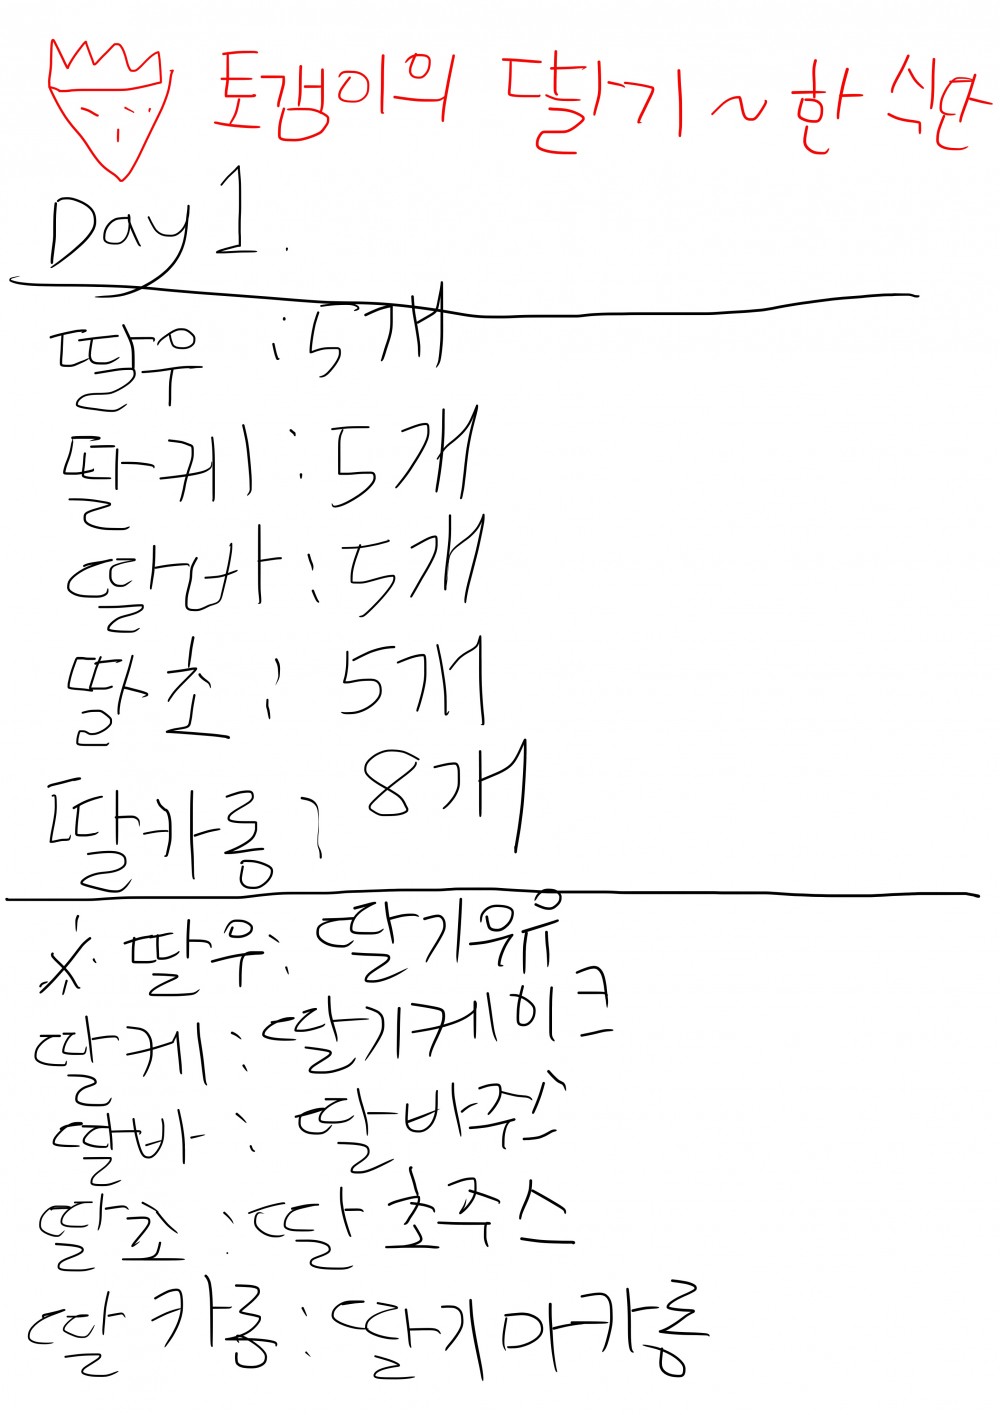 토갱이의 딸기~한 식단
Day 1.
딸우 : 5개
딸케 : 5개
딸바 : 5개
딸초 : 5개
딸카롱 : 8개
※ 딸우 : 딸기우유
딸케 : 딸기케이크
딸바 : 딸바쥬스
딸초 : 딸초주스
딸카롱 : 딸기마카롱